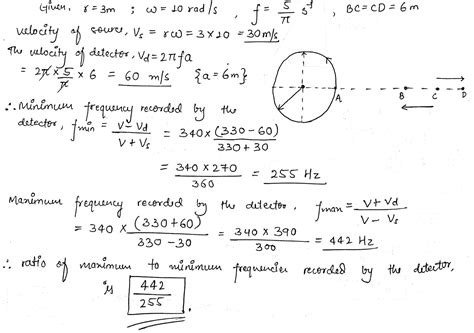 Given, r = 3m ; ω = 10 rad/s , f = 5/π s⁻¹ , BC = CD = 6m
velocity of source, Vs = rω = 3 × 20 = 30 m/s
The velocity of detector, Vd = 2πfa
= 2π × 5/π × 6 = 60 m/s {a = 6m}
A B C D
∴ Minimum frequency recorded by the
detector, fmin = V - Vd / V + Vs = 340 × (330 - 60) / 330 + 30
= 340 × 270 / 360 = 255 Hz
Maximum frequency recorded by the detector, fmax = V + Vd / V - Vs
= 340 × (330 + 60) / 330 - 30 = 340 × 390 / 300 = 442 Hz
∴ ratio of maximum to minimum frequencies recorded by the detector,
is 442 / 255 .